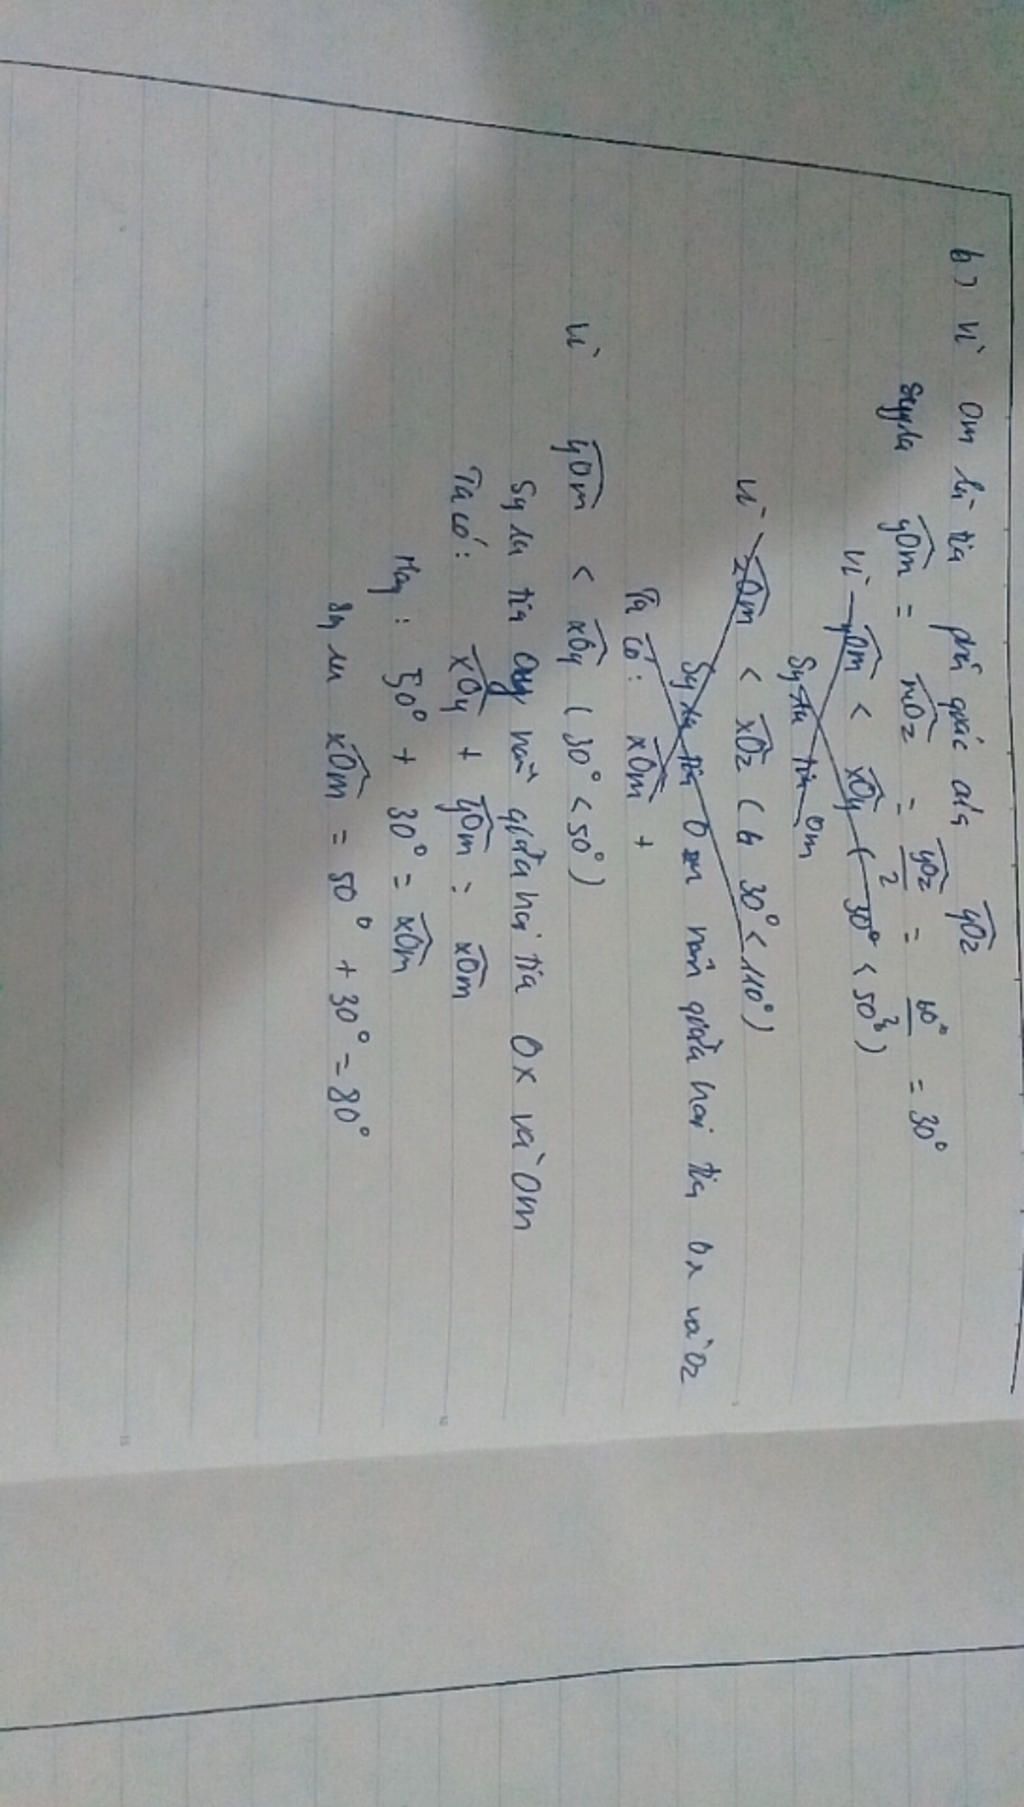 b) Vì Om là tia phân giác của yOz
Suy ra yOm = mOz = yOz/2 = 60°/2 = 30°
Vì yOm < xOy ( 30° < 50° )
Suy ra tia Om
Vì zOm < xOz ( 30° < 110° )
Suy ra tia Om nằm giữa hai tia Ox và Oz
Ta có: xOm +
Vì yOm < xOy ( 30° < 50° )
Suy ra tia Oy nằm giữa hai tia Ox và Om
Ta có: xOy + yOm = xOm
Hay : 50° + 30° = xOm
Suy ra xOm = 50° + 30° = 80°